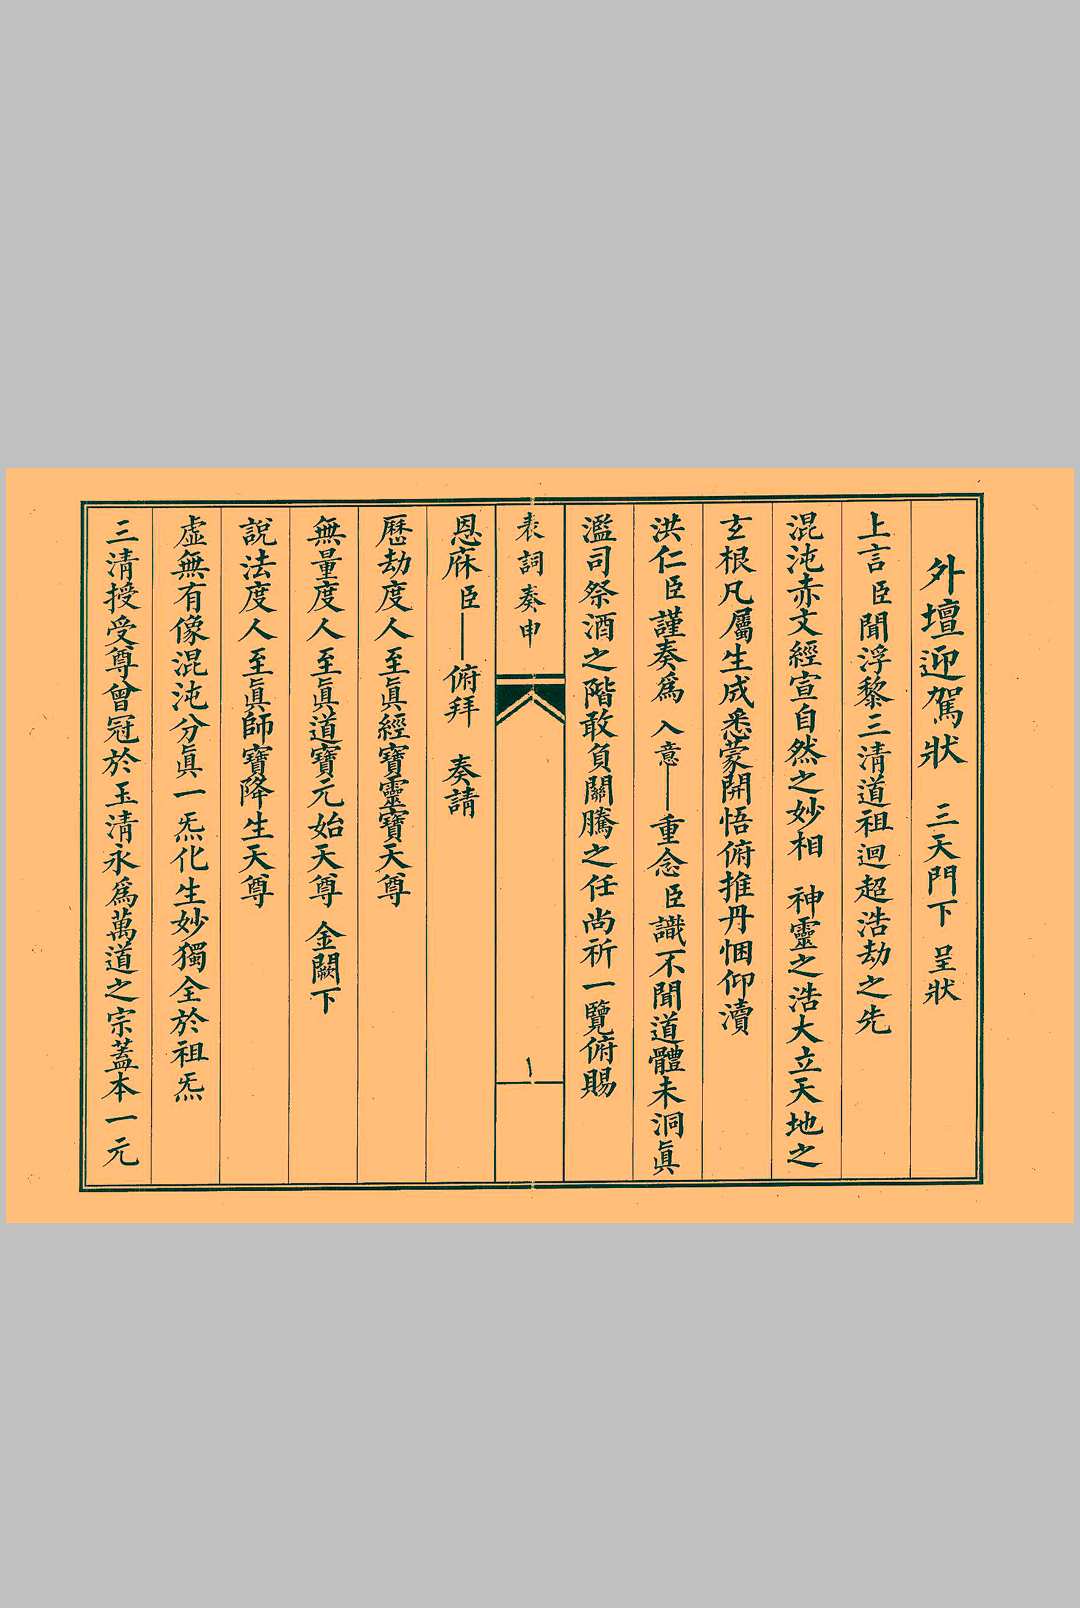 外壇迎駕狀　三天門下　呈狀
上言臣聞浮黎三清道祖迴超浩劫之先
混沌赤文經宣自然之妙相　神靈之浩大立天地之
玄根凡屬生成悉蒙開悟俯推丹悃仰瀆
洪仁臣謹奏為　入意——重念臣識不聞道體未洞眞
濫司祭酒之階敢負關騰之任尚祈一覽俯賜
表詞奏申
一
恩庥臣——俯拜　奏請
歷劫度人至眞經寶靈寶天尊
無量度人至眞道寶元始天尊　金闕下
說法度人至眞師寶降生天尊
虛無有像混沌分眞一炁化生妙獨全於祖炁
三清授受尊曾冠於玉清永為萬道之宗蓋本一元